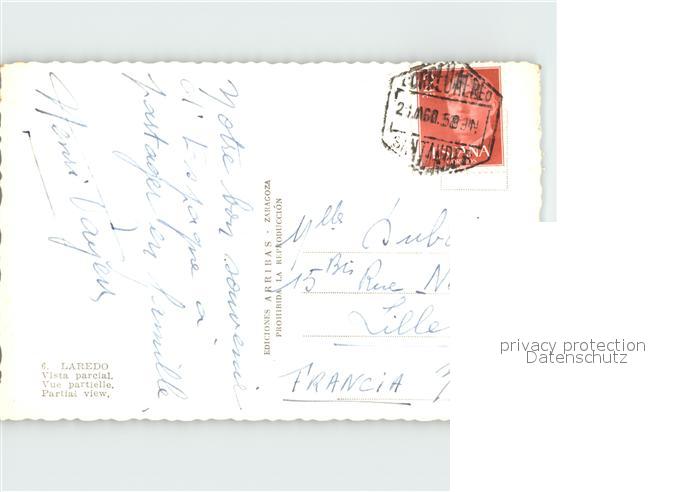 Notre bon souvenir
d'Espagne à
partager en famille.
Henri
6. LAREDO
Vista parcial.
Vue partielle.
Partial view.
EDICIONES ARRIBAS - ZARAGOZA
PROHIBIDA LA REPRODUCCIÓN
CORREO AEREO
SANTANDER
ESPAÑA
Mlle
15 Bis Rue N
Lille
FRANCIA
privacy protection
Datenschutz